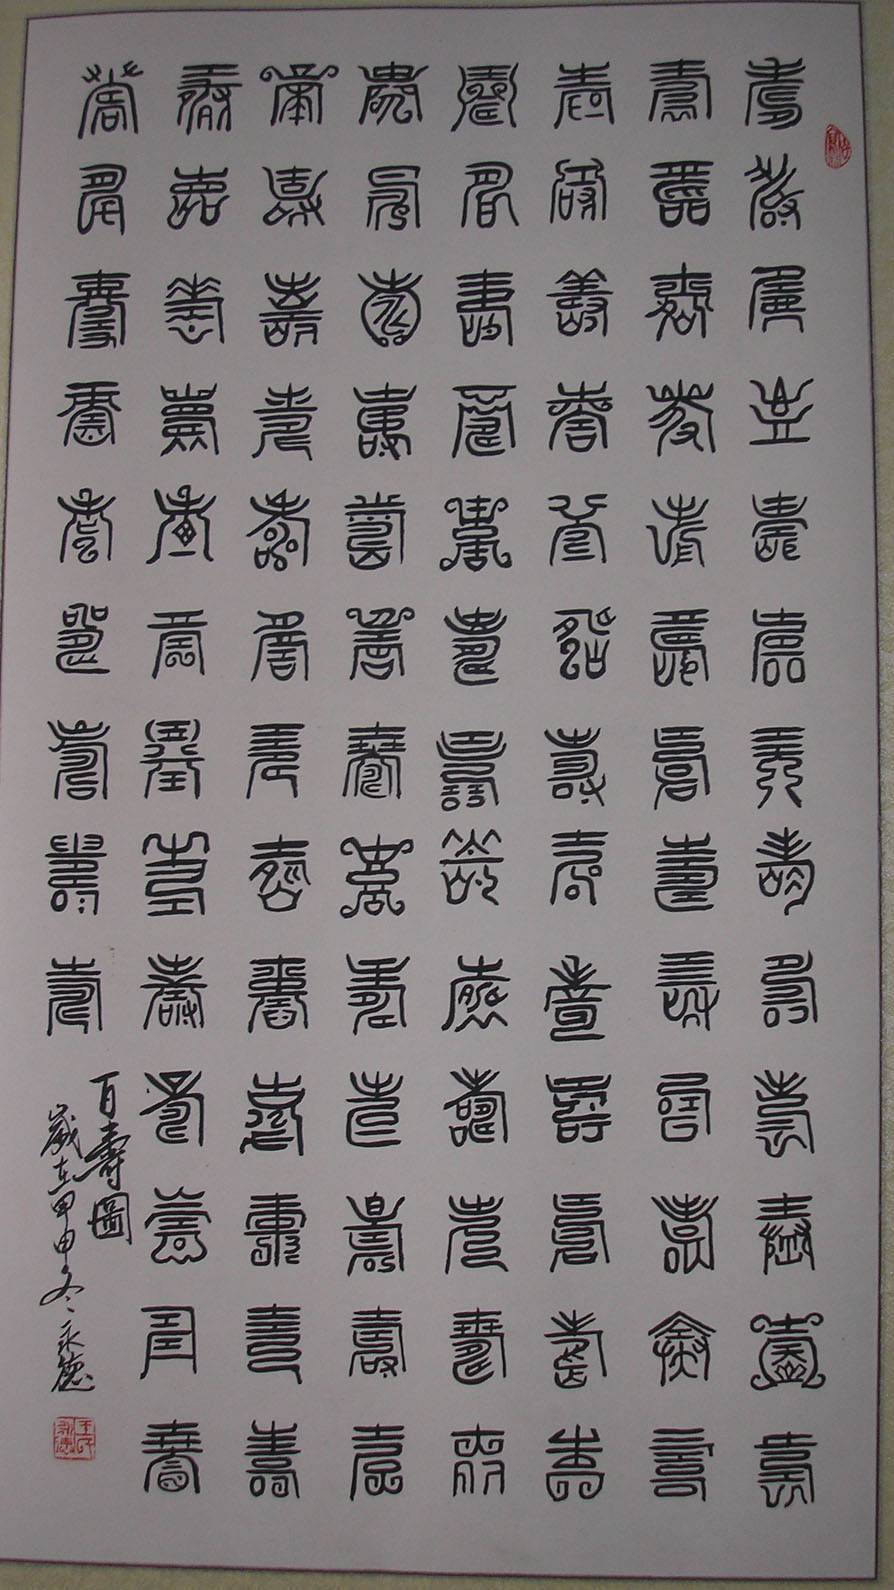 壽壽壽壽壽壽壽壽壽壽壽壽壽
壽壽壽壽壽壽壽壽壽壽壽壽壽
壽壽壽壽壽壽壽壽壽壽壽壽壽
壽壽壽壽壽壽壽壽壽壽壽壽壽
壽壽壽壽壽壽壽壽壽壽壽壽壽
壽壽壽壽壽壽壽壽壽壽壽壽壽
壽壽壽壽壽壽壽壽壽壽壽壽壽
壽壽壽壽壽壽壽壽壽
百壽圖
歲在甲申冬永德